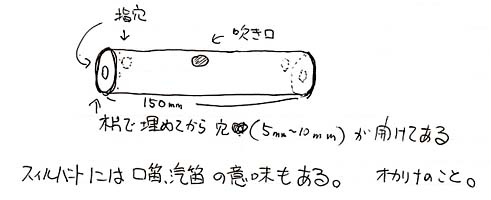 指穴
吹き口
150mm
栓で埋めてから穴(5mm~10mm)が開けてある
スィルバートには口笛、汽笛の意味もある。 オカリナのこと。